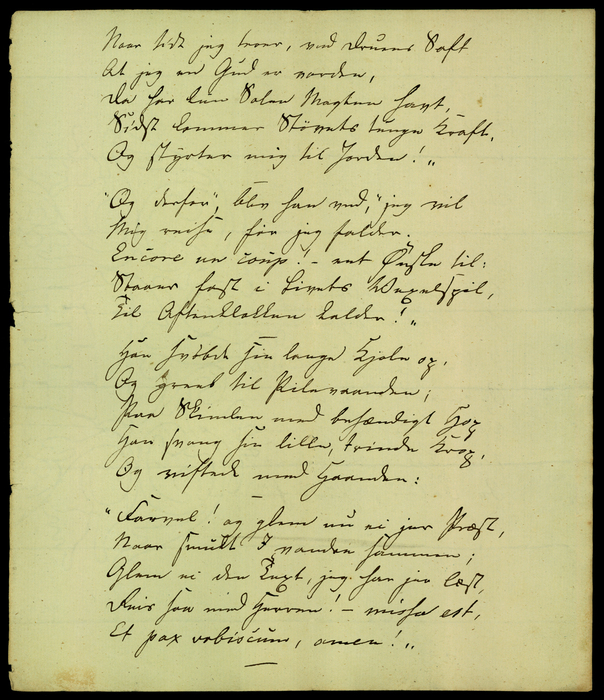 Naar tidt jeg troer, ved Druens Saft
At jeg en Gud er vorden,
Da har kun Solen Magten havt,
Sidst kommer Støvets tunge Kraft,
Og styrter mig til Jorden!„
"Og derfor", blev han ved, "jeg vil
Mig reise, før jeg falder.
Encore un coup! – eet Ønske til:
Staaer fast i Livets Vexelspil,
Til Aftenklokken kalder!„
Han svøbde sin lange Kjole op,
Og greeb til Pilevaanden;
Paa Skimlen med behændigt Hop
Han svang sin lille, trinde Krop,
Og viftede med Haanden:
"Farvel! og glem nu ei jer Præst,
Naar smukt I vandre sammen;
Glem ei den Text, jeg har jer læst,
Priis saa med Herren! – missa est,
Et pax vobiscum, amen!„